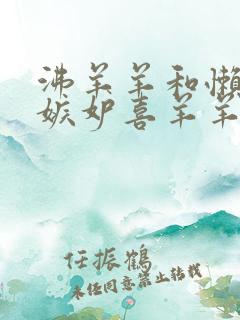 沸羊羊和懒
嫉妒喜羊羊
任振鹤
未经同意禁止转载